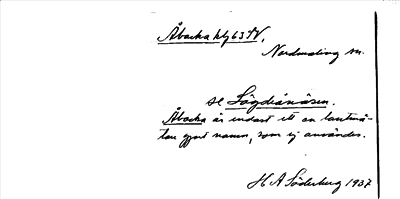 Åbacka hlg 63 AV,
Nordmaling sn.
se Lögdeånäsen.
Åbacka är endast ett av lantmä-
tare gjort namn, som ej användes.
H A Söderberg 1937